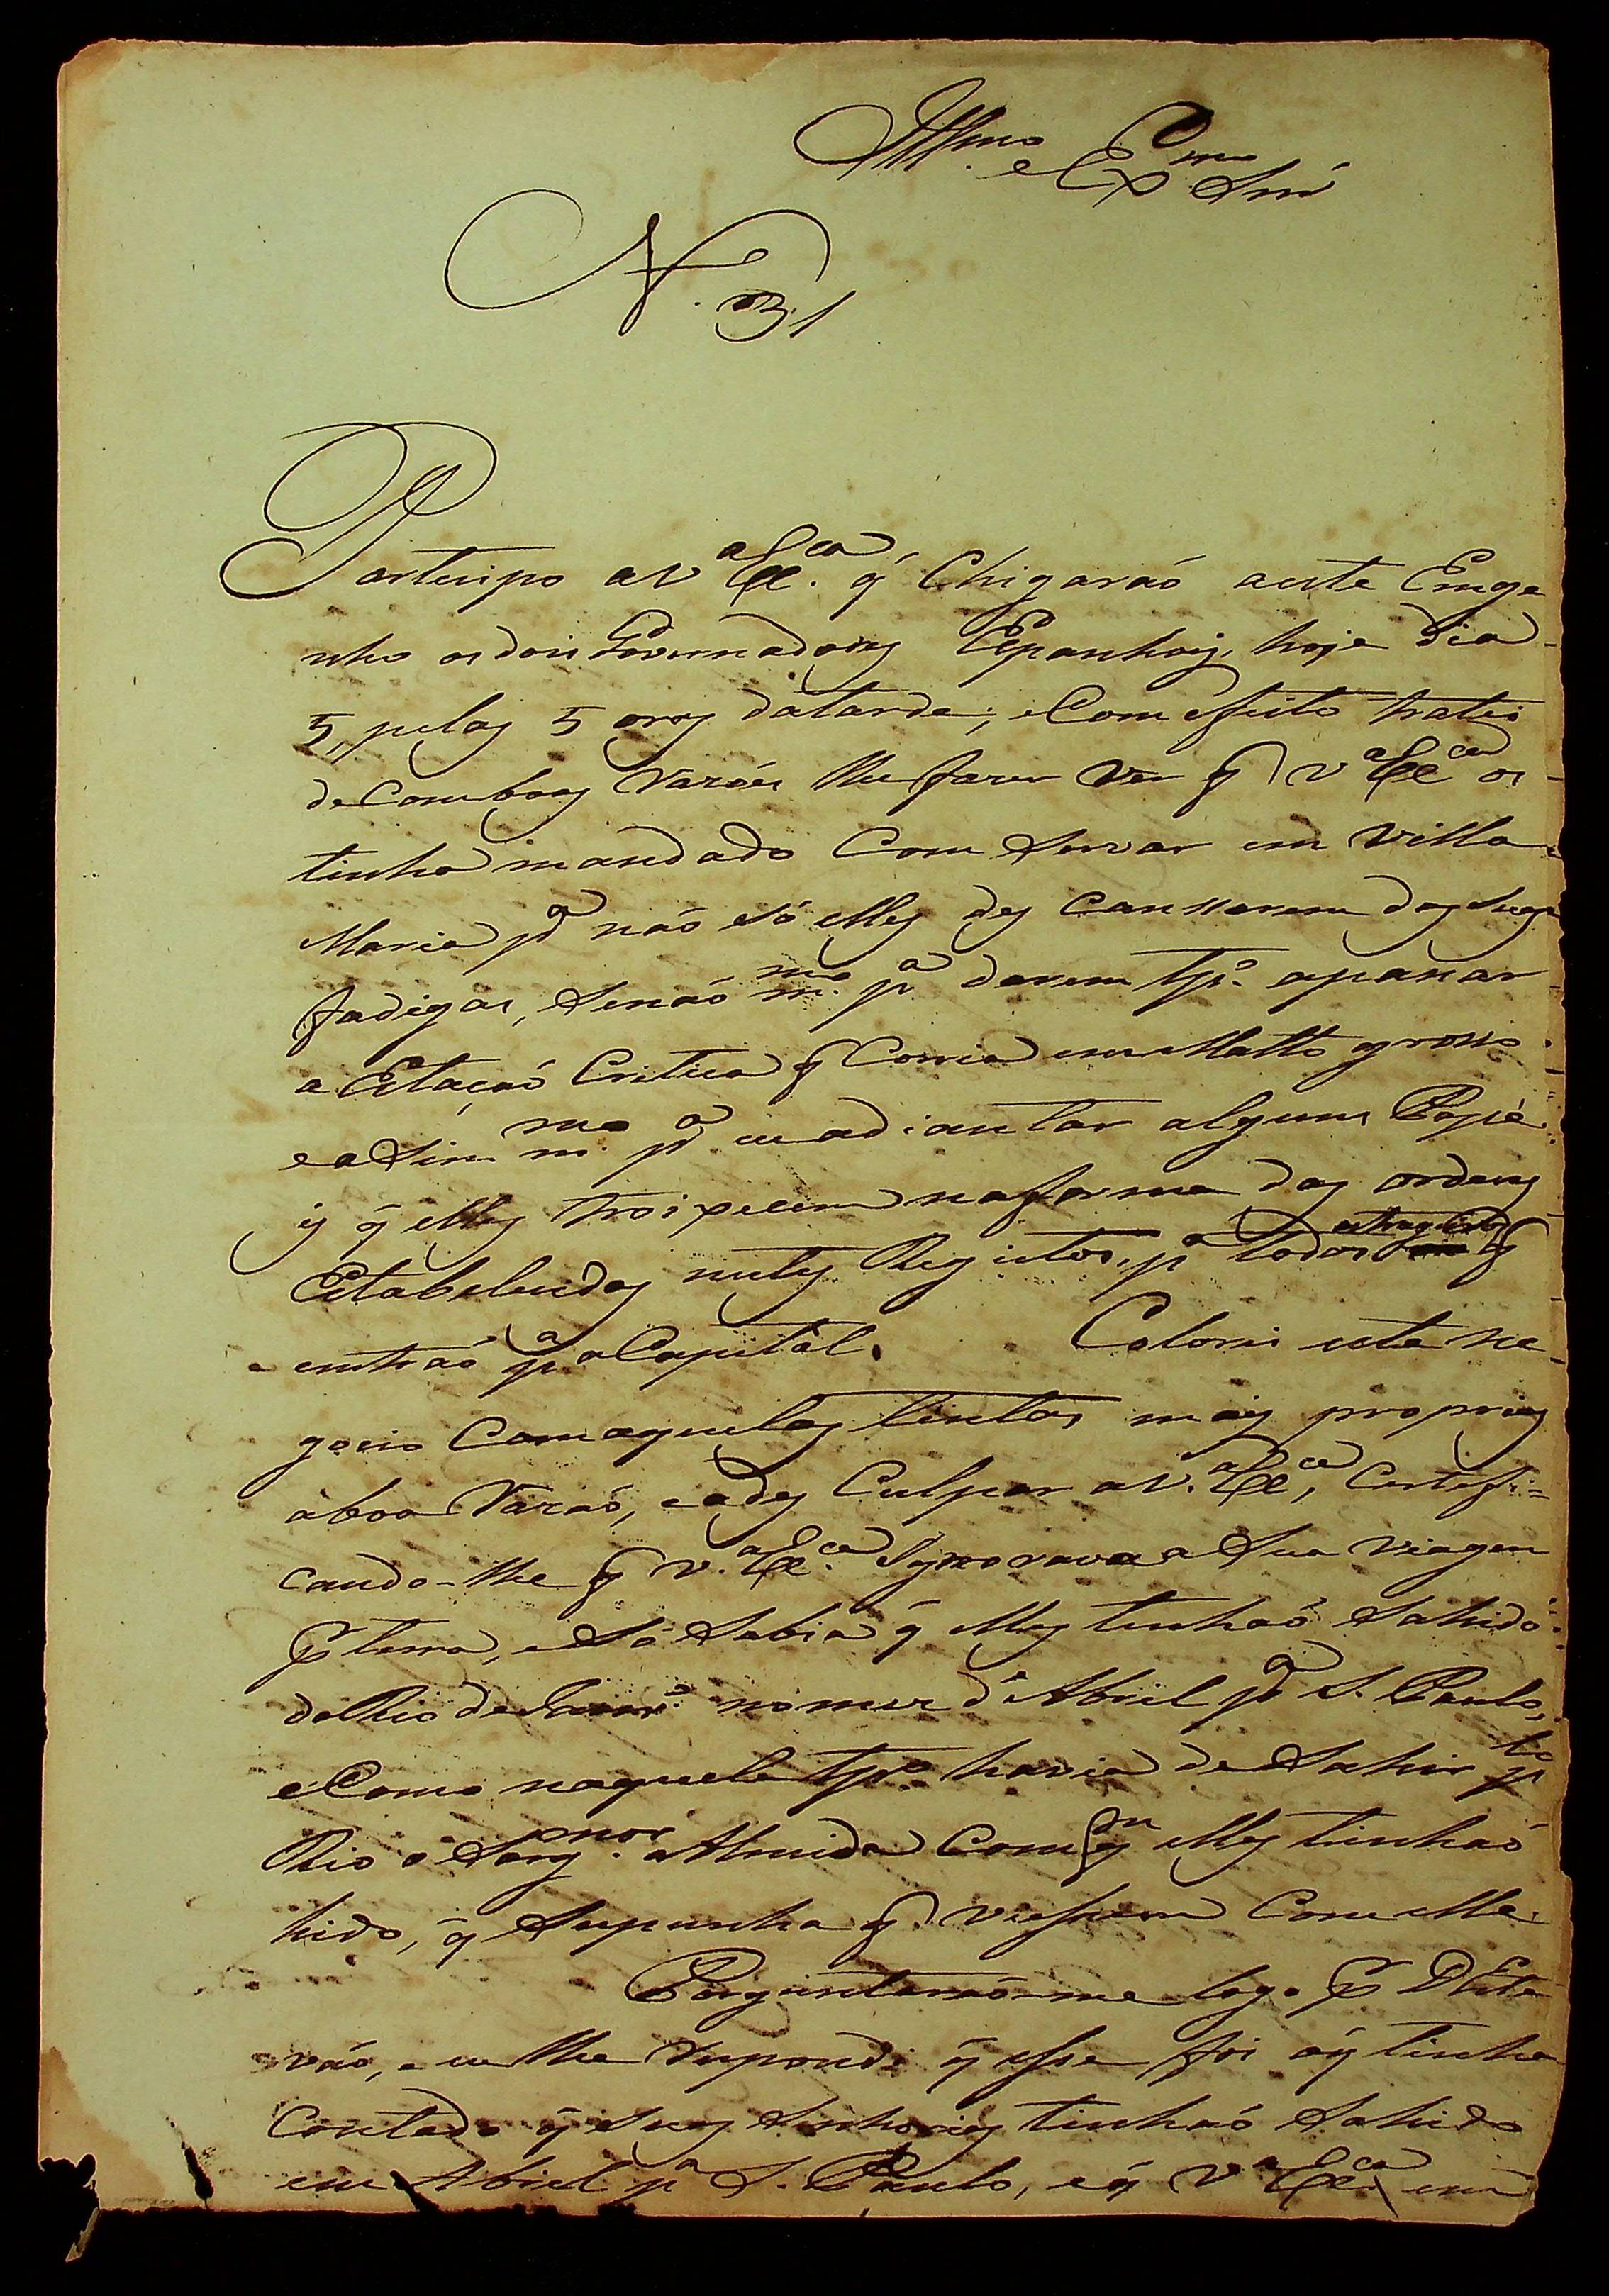 Illmo. e Exmo. Snr.
N. 31
Partecipo a V.a Ex.ca, q̃ Chigaraó a este Emge
nho os dois Governadoreș Espanhois, hoje dia
5, pelas 5 oras da tarde; e Com efeito tratei
de Com boas Razóes lhe fazer ver q̃ V.a Ex.ca os
tinha mandado Com servar em Villa
Maria p.a naó só elles des Cansarem das suas
fadigas, senaó m.mo p.a darem tp.o apasar
a Estaçaó Critica q̃ Corria em Matto grosso
e a Sim m.mo p.a eu adiantar alguns Papé
is q̃ elles troixecem na forma das ordens
Estabelecidas nestes Registos, p.a todos q̃
entraó p.a a Capital. Colori este ne-
gocio Com aquelas tintas mais proprias
a boa Razaó, e a des Culpar a V.a Ex.ca, Certefi=
cando-lhe q̃ V.a Ex.ca Ignorava a Sua viagem
p.r terra, e Só Sabia q̃ elles tinhaó Sahido
do Rio de Janr.o no mez d'Abril p.a S. Paulo,
e Como naquele tp.o havia de Sahir p.lo
Rio o Sarg.mor Almeida Com q.m elles tinhaó
hido, q̃ Supunha q̃ viessem Com elle.
Perguntaraó-me logo p.r D Este
vaó, e eu lhe respondi q̃ esse foi o q̃ tinha
Contado q̃ Suas Senhorias tinhaó Sahido
em Abril p.a S. Paulo, e q̃ V.a Ex.ca em